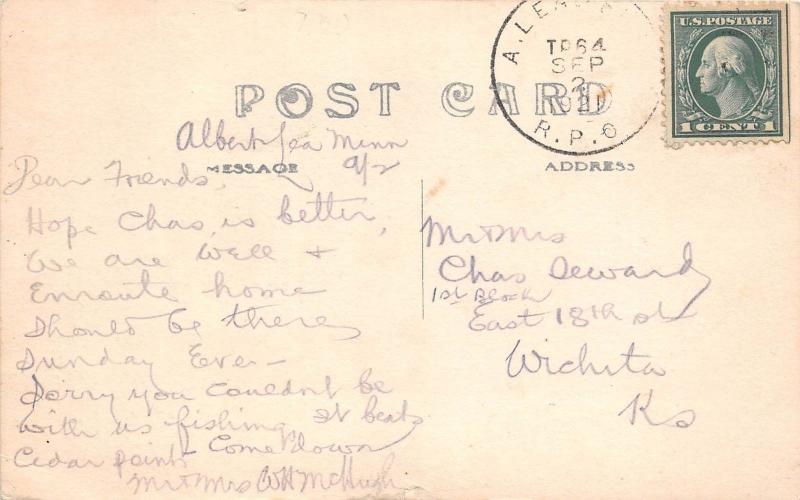 POST CARD
MESSAGE
ADDRESS
U.S. POSTAGE
1 CENT 1
TR 64
SEP
2
1921
R.P.O
Albert Lea Minn
9/2
Dear Friends,
Hope Chas. is better,
We are well +
Enroute home
Should be there
Sunday Eve -
Sorry you couldn't be
with us fishing. It beats
Cedar point - Come down
Mr + Mrs WH McHugh
Mr + Mrs
Chas Seward
1st Block
East 18th st
Wichita
Ks